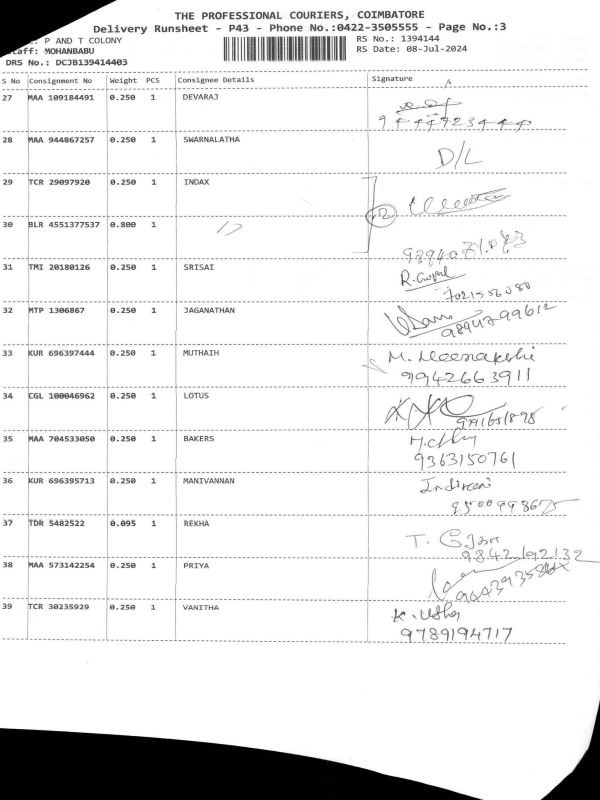 THE PROFESSIONAL COURIERS, COIMBATORE
Delivery Runsheet - P43 - Phone No.:0422-3505555 - Page No.:3
: P AND T COLONY
Staff: MOHANBABU
DRS No.: DCJB139414403
RS No.: 1394144
RS Date: 08-Jul-2024
S No Consignment No Weight PCS Consignee Details Signature
27 MAA 109184491 0.250 1 DEVARAJ
28 MAA 944867257 0.250 1 SWARNALATHA D/L
29 TCR 29097920 0.250 1 INDAX
30 BLR 4551377537 0.800 1
31 TMI 20180126 0.250 1 SRISAI R. Gopal
7021556080
32 MTP 1306867 0.250 1 JAGANATHAN
33 KUR 696397444 0.250 1 MUTHAIH M. Meenakshi
9942663911
34 CGL 100046962 0.250 1 LOTUS
35 MAA 704533050 0.250 1 BAKERS
9363150761
36 KUR 696395713 0.250 1 MANIVANNAN Indirani
37 TDR 5482522 0.095 1 REKHA
9842192132
38 MAA 573142254 0.250 1 PRIYA
39 TCR 30235929 0.250 1 VANITHA K. Usha
9789194717